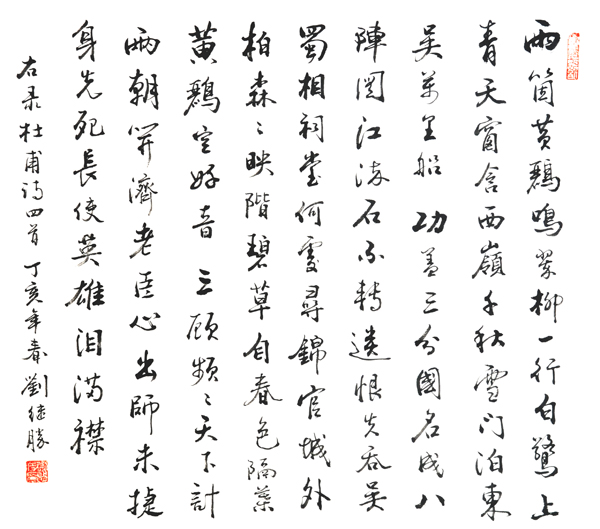 兩箇黄鸝鳴翠柳一行白鷺上
青天窗含西嶺千秋雪门泊東
吴萬里船 功蓋三分國名成八
陣圖江流石不轉遗恨失吞吴
蜀相祠堂何處尋錦官城外
柏森〻映階碧草自春色隔葉
黄鸝空好音 三顾频〻天下計
兩朝開濟老臣心出師未捷
身先死長使英雄泪满襟
右录杜甫诗四首 丁亥年春 劉继勝